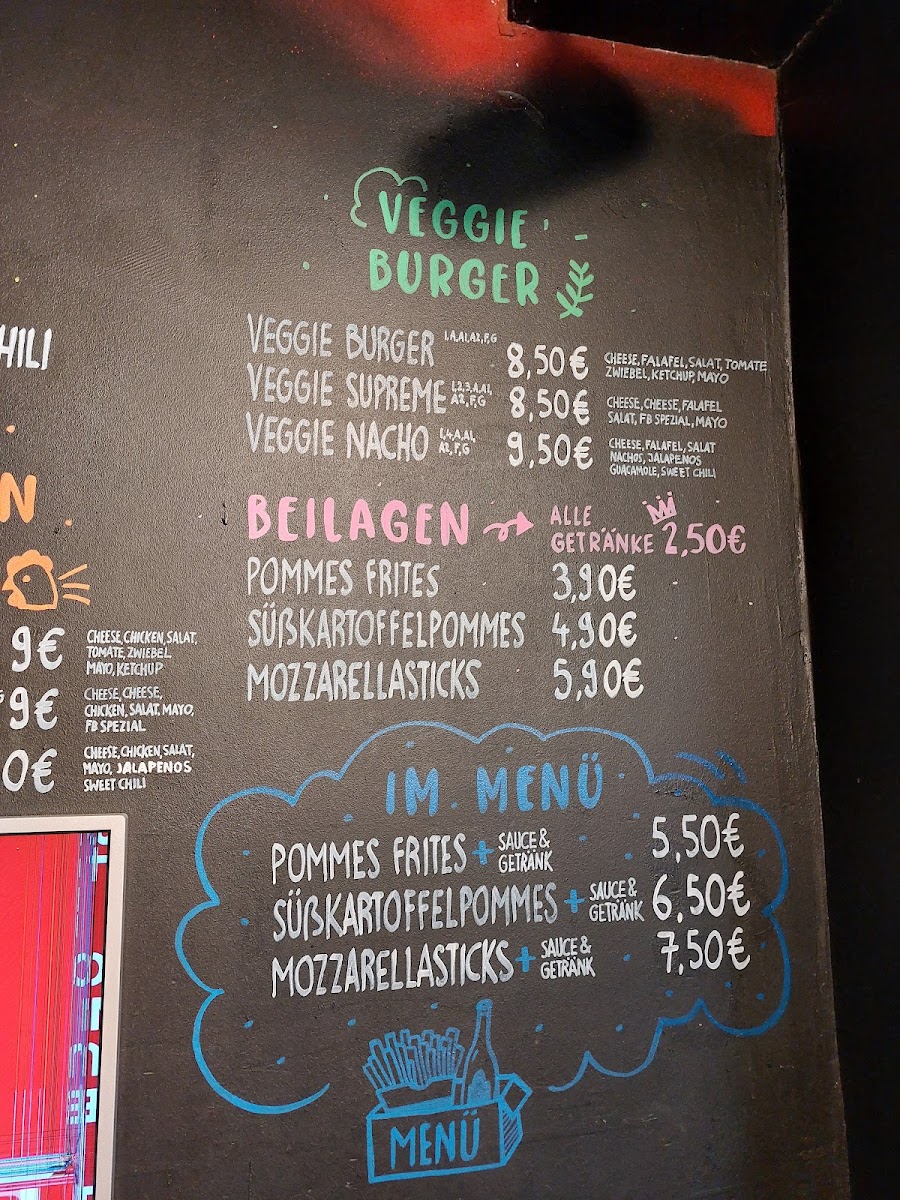 VEGGIE
BURGER
VEGGIE BURGER 1,A,A1,A2,F,G 8,50€ CHEESE, FALAFEL, SALAT, TOMATE
ZWIEBEL, KETCHUP, MAYO
VEGGIE SUPREME 1,2,3,A,A1,
A2,F,G 8,50€ CHEESE, CHEESE, FALAFEL
SALAT, FB SPEZIAL, MAYO
VEGGIE NACHO 1,4,A,A1,
A2,F,G 9,50€ CHEESE, FALAFEL, SALAT
NACHOS, JALAPENOS
GUACAMOLE, SWEET CHILI
BEILAGEN ALLE
GETRÄNKE 2,50€
POMMES FRITES 3,90€
SÜßKARTOFFELPOMMES 4,90€
MOZZARELLASTICKS 5,90€
IM MENÜ
POMMES FRITES + SAUCE &
GETRÄNK 5,50€
SÜßKARTOFFELPOMMES + SAUCE &
GETRÄNK 6,50€
MOZZARELLASTICKS + SAUCE &
GETRÄNK 7,50€
MENÜ
HILI
N
9€ CHEESE, CHICKEN, SALAT,
TOMATE, ZWIEBEL
MAYO, KETCHUP
9€ CHEESE, CHEESE,
CHICKEN, SALAT, MAYO,
FB SPEZIAL
0€ CHEESE, CHICKEN, SALAT,
MAYO, JALAPENOS
SWEET CHILI